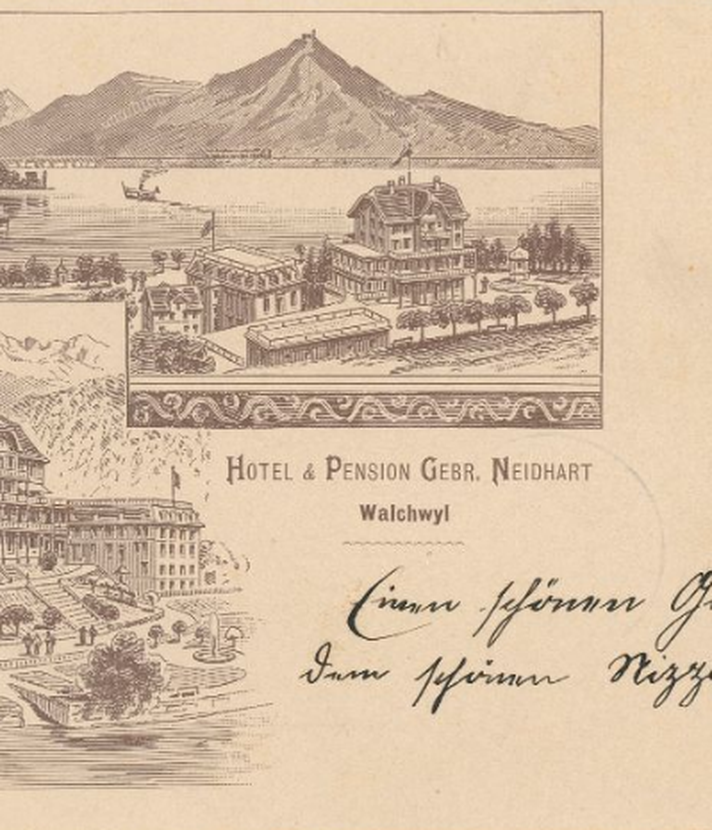 HOTEL & PENSION GEBR. NEIDHART
Walchwyl
Einen schönen
dem schönen